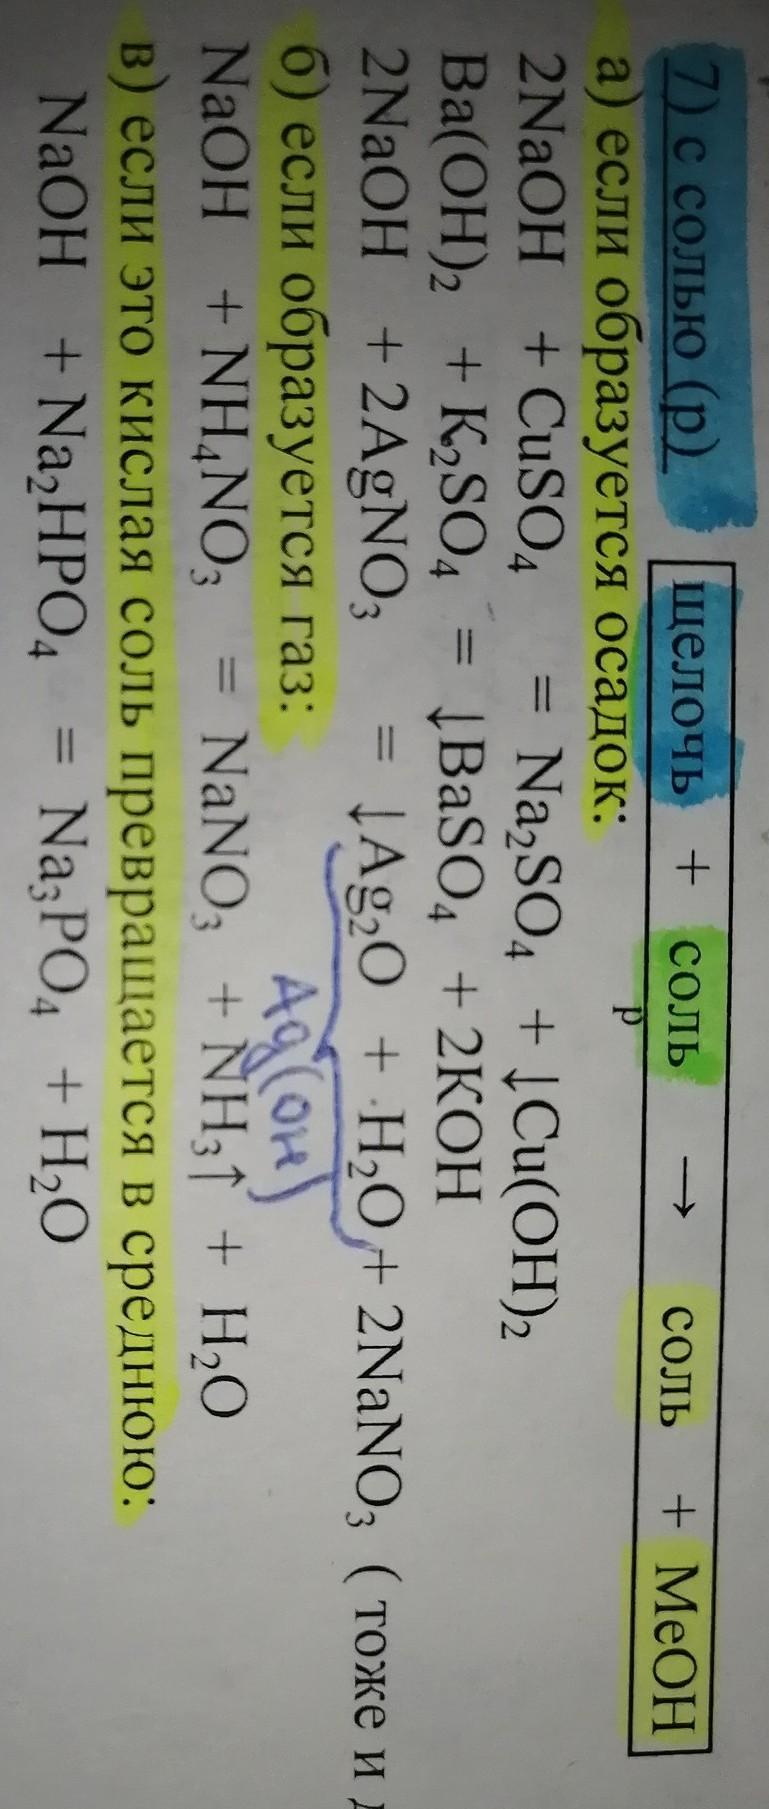 7) с солью (р) щелочь + соль → соль + МеОН
р
а) если образуется осадок:
2NaOH + CuSO₄ = Na₂SO₄ + ↓Cu(OH)₂
Ba(OH)₂ + K₂SO₄ = ↓BaSO₄ + 2KOH
2NaOH + 2AgNO₃ = ↓Ag₂O + H₂O + 2NaNO₃ ( тоже и
Ag(OH)
б) если образуется газ:
NaOH + NH₄NO₃ = NaNO₃ + NH₃↑ + H₂O
в) если это кислая соль превращается в среднюю:
NaOH + Na₂HPO₄ = Na₃PO₄ + H₂O